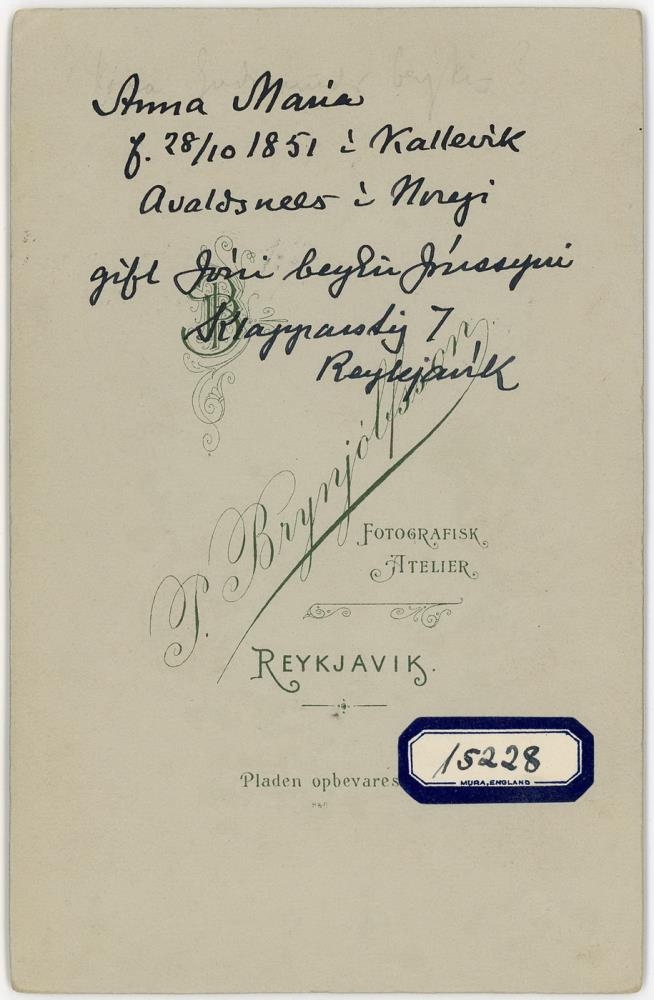 Anna Maria
f. 28/10 1851 í Kallevik
Avaldsnees í Noregi
gift Jóni beyki Jónssyni
Klapparstíg 7
Reykjavík
PB
P. Brynjólfsson
FOTOGRAFISK
ATELIER
REYKJAVIK.
Pladen opbevares
15228
MURA, ENGLAND